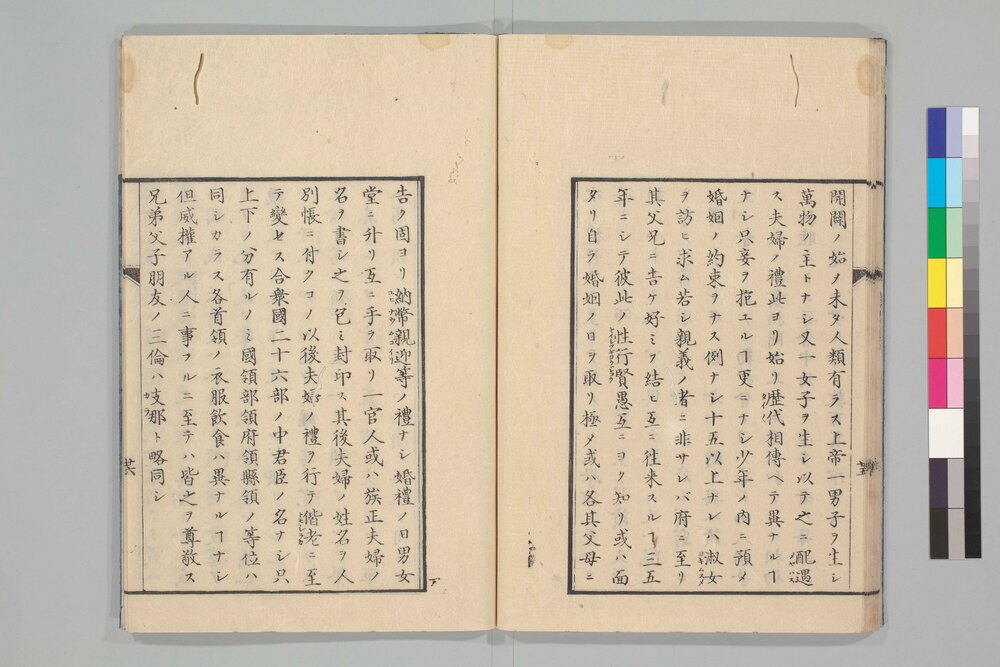 開闢ノ始メ未タ人類有ラス上帝一男子ヲ生シ
萬物ノ主トナシ又一女子ヲ生シ以テ之ニ配遇
ス夫婦ノ禮此ヨリ始リ歴代相傳ヘテ異ナルヿ
ナシ只妾ヲ抱ユルヿ更ニナシ少年ノ内ニ預メ
婚姻ノ約束ヲナス例ナシ十五以上ナレハ淑女
ヲ訪ヒ求ム若シ親義ノ者ニ非サレバ府ニ至リ
其父兄ニ告ケ好ミヲ結ヒ互ニ往来スルヿ三五
年ニシテ彼此ノ性行賢愚互ニヨク知リ或ハ面
タリ自ラ婚姻ノ日ヲ取リ極メ或ハ各其父母ニ
告ク固ヨリ納幣親迎等ノ禮ナシ婚禮ノ日男女
堂ニ升リ互ニ手ヲ取リ一官人或ハ族正夫婦ノ
名ヲ書シ之ヲ包ミ封印ス其後夫婦ノ姓名ヲ人
別帳ニ付クコノ以後夫婦ノ禮ヲ行テ偕老ニ至
テ變セス合衆國二十六部ノ中君臣ノ名ナシ只
上下ノ分有ルノミ國領部領府領縣領ノ等位ハ
同シカラス各首領ノ衣服飲食ハ異ナルヿナシ
但威權アル人ニ事フルニ至テハ皆之ヲ尊敬ス
兄弟父子朋友ノ三倫ハ支那ト略同シ